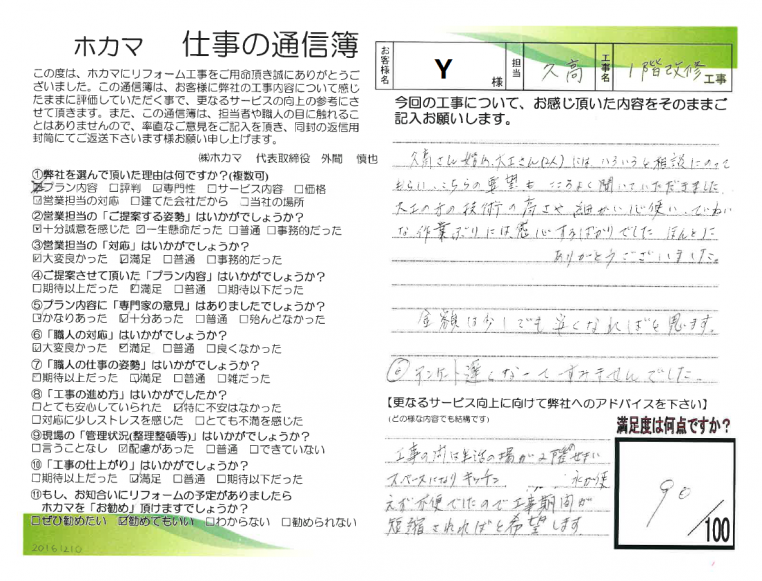 ホカマ 仕事の通信簿
この度は、ホカマにリフォーム工事をご用命頂き誠にありがとうご
ざいました。この通信簿は、お客様に弊社の工事内容について感じ
たままに評価していただく事で、更なるサービスの向上の参考にさ
せて頂きます。また、この通信簿は、担当者や職人の目に触れるこ
とはありませんので、率直なご意見をご記入を頂き、同封の返信用
封筒にてご返送下さいます様お願い申し上げます。
㈱ホカマ 代表取締役 外間 慎也
①弊社を選んで頂いた理由は何ですか?(複数可)
☑プラン内容 □評判 ☑専門性 □サービス内容 □価格
☑営業担当の対応 □建てた会社だから □当社の場所
②営業担当の「ご提案する姿勢」はいかがでしょうか?
☑十分誠意を感じた ☑一生懸命だった □普通 □事務的だった
③営業担当の「対応」はいかがでしょうか?
☑大変良かった ☑満足 □普通 □事務的だった
④ご提案させて頂いた「プラン内容」はいかがでしょうか?
□期待以上だった ☑満足 □普通 □期待以下だった
⑤プラン内容に「専門家の意見」はありましたでしょうか?
☑かなりあった ☑十分あった □普通 □殆んどなかった
⑥「職人の対応」はいかがでしょうか?
☑大変良かった ☑満足 □普通 □良くなかった
⑦「職人の仕事の姿勢」はいかがでしょうか?
☑期待以上だった ☑満足 □普通 □雑だった
⑧「工事の進め方」はいかがでしたか?
□とても安心していられた ☑特に不安はなかった
□対応に少しストレスを感じた □とても不満を感じた
⑨現場の「管理状況(整理整頓等)」はいかがでしょうか?
□言うことなし ☑配慮があった □普通 □できていない
⑩「工事の仕上がり」はいかがでしょうか?
□期待以上だった ☑満足 □普通 □期待以下だった
⑪もし、お知合いにリフォームの予定がありましたら
ホカマを「お勧め」頂けますでしょうか?
□ぜひ勧めたい ☑勧めてもいい □わからない □勧められない
20161210
お客様名 Y 様 担当 久高 工事名 1階改修 工事
今回の工事について、お感じ頂いた内容をそのままご
記入お願いします。
久高さん始め、大工さん(2人)にはいろいろと相談にのって
もらい、こちらの要望もこころよく聞いていただきました。
大工の方の技術の高さや細かい心使い、ていねい
な作業ぶりには感心するばかりでした ほんとに
ありがとうございました。
金額は少しでも安くなればと思います。
アンケート遅くなってすみませんでした。
【更なるサービス向上に向けて弊社へのアドバイスを下さい】
(どの様な内容でも結構です)
満足度は何点ですか?
工事の間は生活の場が2階せまい
スペースになりキッチン 水が使
えず不便でしたので工事期間が
短縮されればと希望します
90
/100